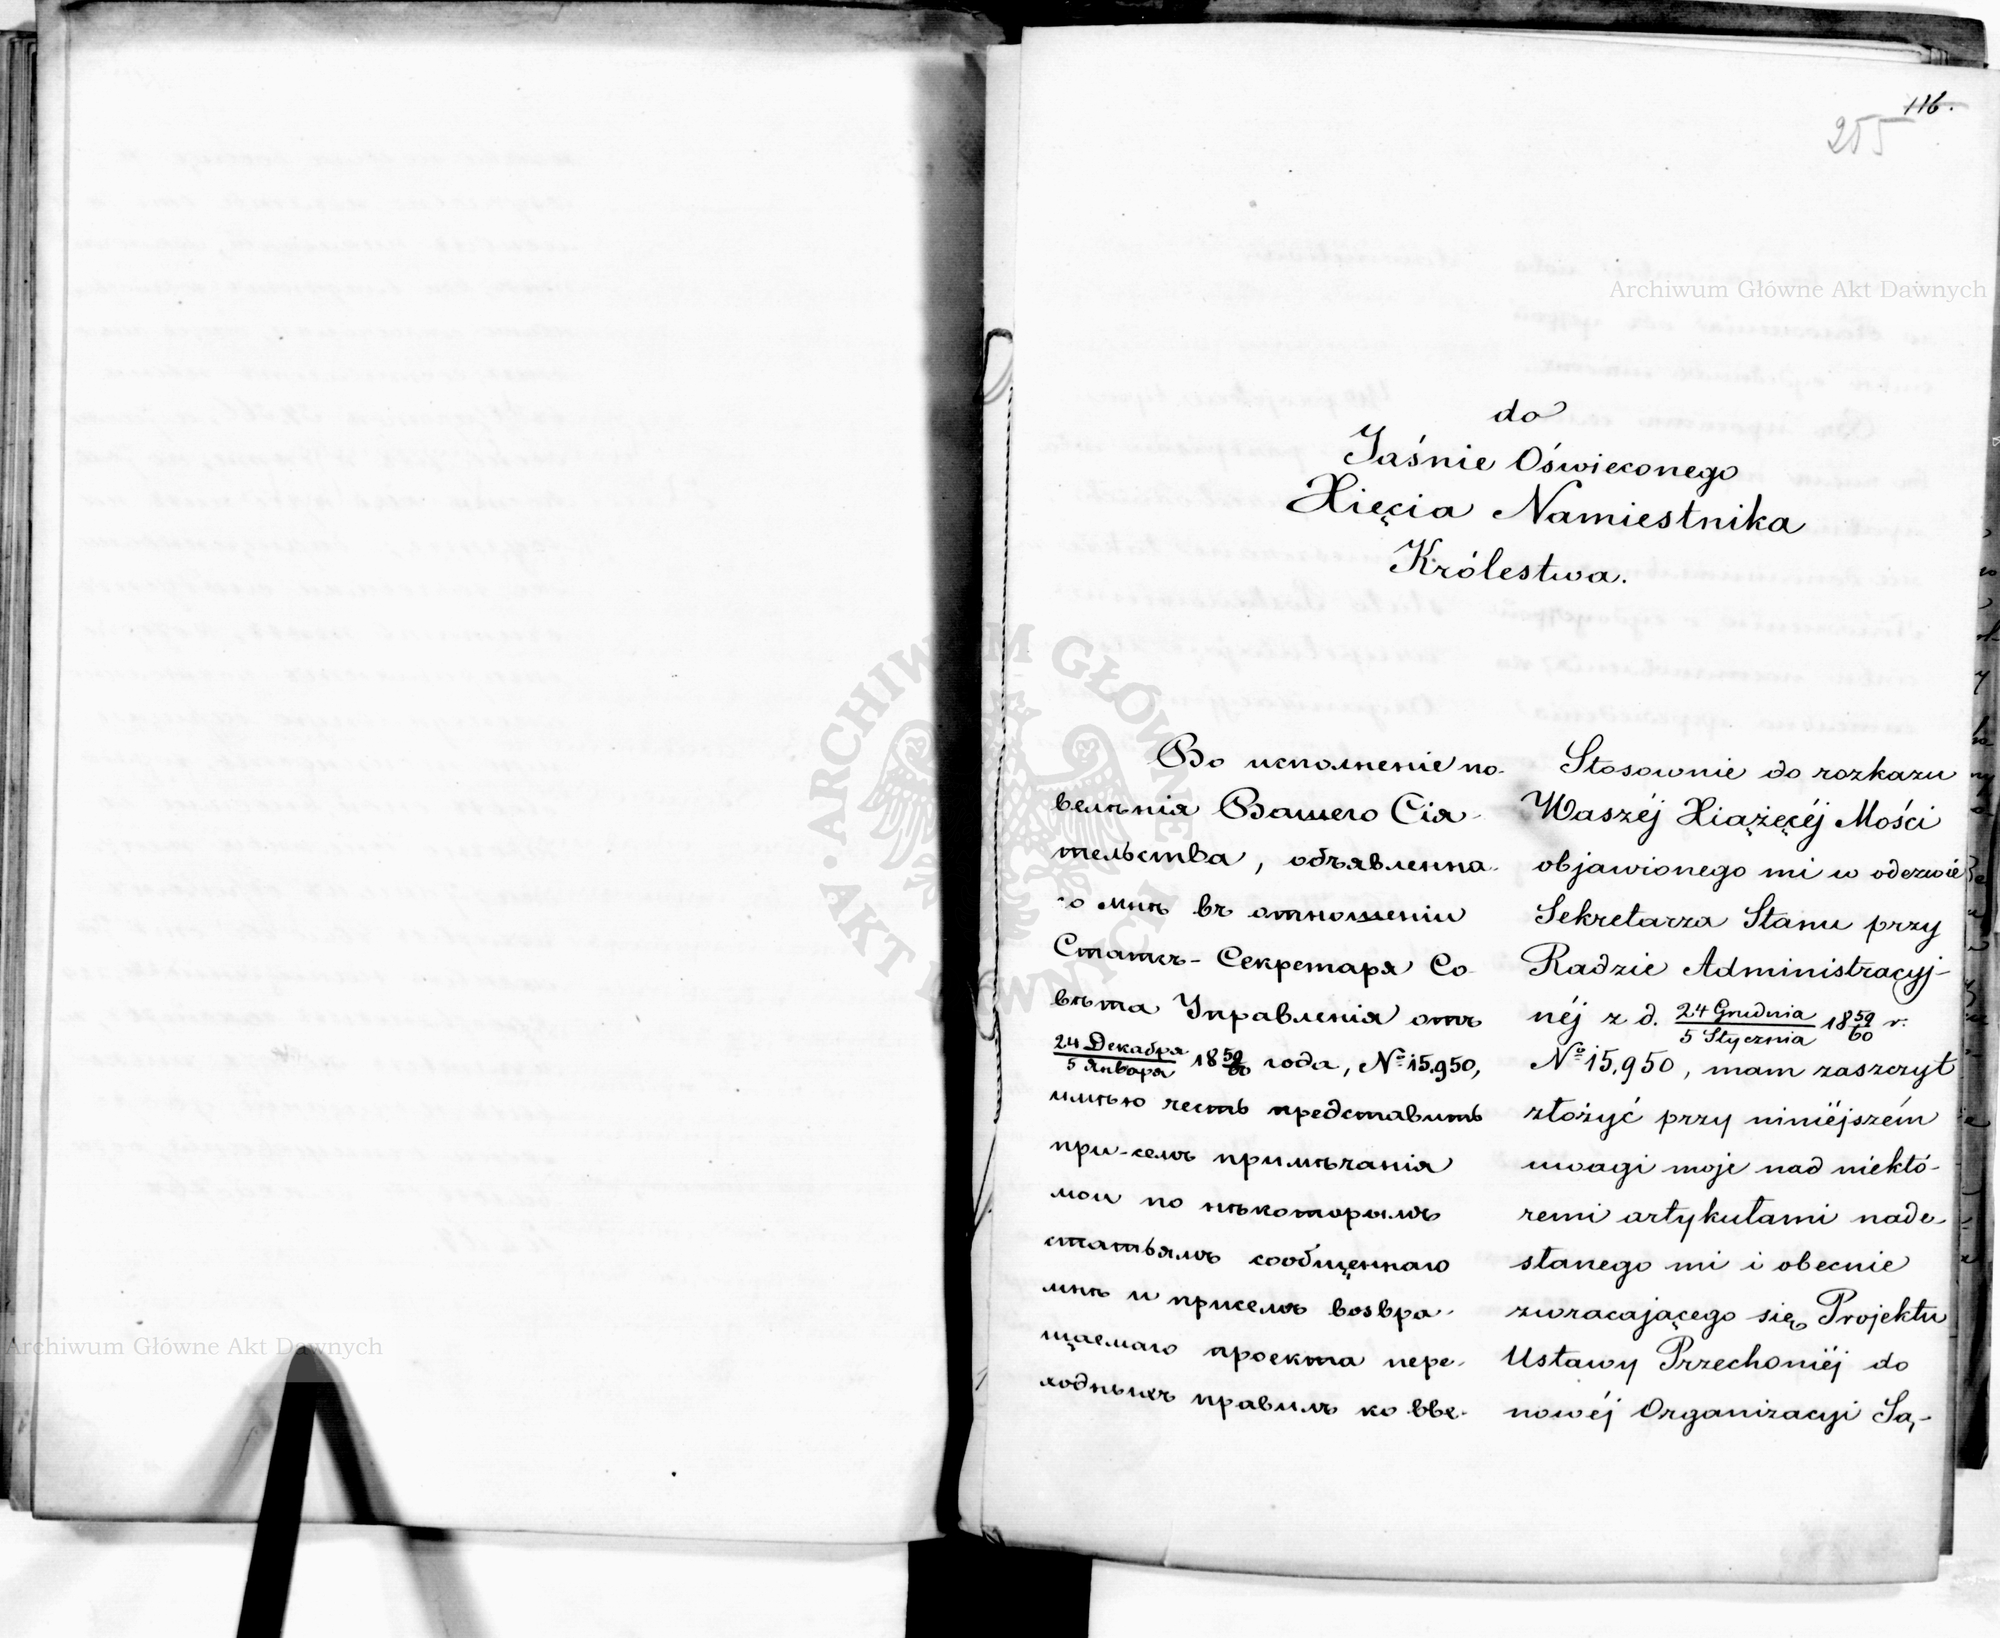 116.
255
do
Jaśnie Oświeconego
Xięcia Namiestnika
Królestwa.
Во исполненіе по-
велѣнія Вашего Сія-
тельства, объявленна-
го мнѣ въ отношеніи
Статсъ-Секретаря Со-
вѣта Управленія отъ
24 Декабря / 5 Января 18 59/60 года, № 15,950,
имѣю честь представить
при-семъ примѣчанія
мои по нѣкоторымъ
статьямъ сообщеннаго
мнѣ и присемъ возвра-
щаемаго проекта пере-
ходныхъ правилъ ко вве-
Stosownie do rozkazu
Waszéj Xiążęcéj Mości
objawionego mi w odezwie
Sekretarza Stanu przy
Radzie Administracyj-
néj z d. 24 Grudnia / 5 Stycznia 18 59/60 r.
№ 15,950, mam zaszczyt
złożyć przy niniéjszém
uwagi moje nad niektó-
remi artykułami nade-
słanego mi i obecnie
zwracającego się Projektu
Ustawy Przechoniéj do
nowéj Organizacyi Są-
Archiwum Główne Akt Dawnych
Archiwum Główne Akt Dawnych
ARCHIWUM GŁÓWNE AKT DAWNYCH